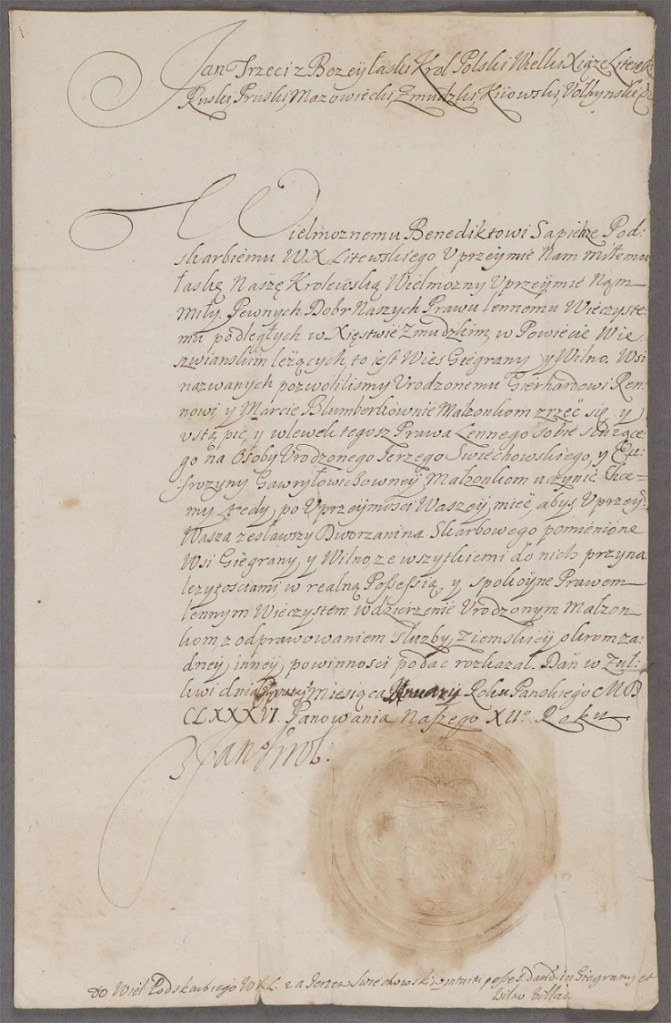 Jan Trzeci z Bozey łaski Krol Polski Wielki Xiąze Litewsk
Ruski, Pruski, Mazowiecki, Zmudzki, Kiiowski, Wołhynski
Wielmoznemu Benediktowi Sapieze Pod-
skarbiemu W.X. Litewskiego Uprzeymie Nam miłemu
łaskę Naszę Krolewską Wielmozny Uprzeymie Nam
miły. Pewnych Dobr Naszych Prawu lennemu Wieczyste-
mu podległych w Xięstwie Zmudzkim, w Powiecie Wie-
szwianskim lezących, to iest Wies Giegrany y Wilno. Wsi
nazwanych pozwolilismy Urodzonemu Gierhardowi Ren-
nowi y Marcie Blumberkownie Małzonkom zrzec się, y
ustąpic, y wlewek tegosz Prawa Lennego sobie słuzące-
go na Osoby Urodzonego Jerzego Swiechowskiego, y Eu-
frozyny Gawryłowiczowney Małzonkom uczynic. Chce-
my tedy, po Uprzeymosci Waszey miec, abys Uprzey:
Wasza zesławszy Dworzanina Skarbowego pomienione
Wsi Giegrany, y Wilno, ze wszytkiemi do nich przyna-
lezytosciami w realną Possessią, y spokoyne Prawem
lennym Wieczystem w dzierzenie Urodzonym Małzon-
kom, z odprawowaniem słuzby, Ziemskiey okrom za-
dney, inney, powinnosci podac rozkazał. Dan w Zuł-
kwi dnia miesiąca January Roku Panskiego MD
CLXXXVI. Panowania Naszego XII° Roku
Jan Krol.
Do Wiel Podskarbiego WXL. za Jerzem Swiechowskim possess. in Giegrany et
Wilno Villas